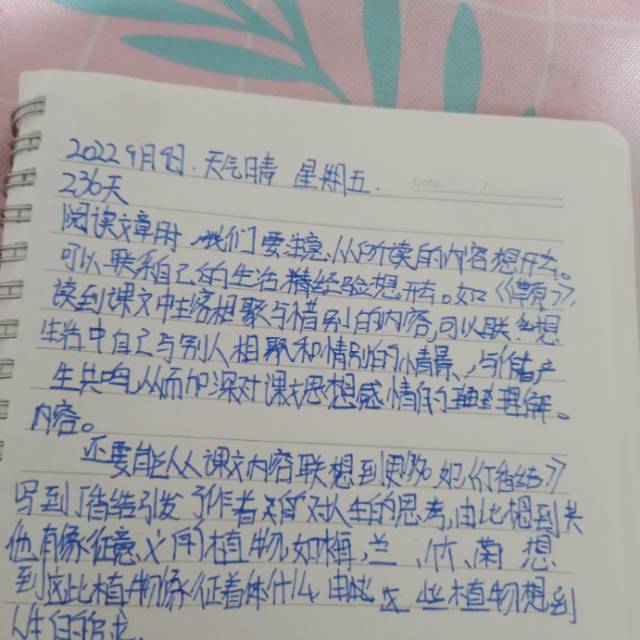 2022 9月9日. 天气晴 星期五.
Date: /
236天
阅读文章时,我们要注意,从所读的内容想开去。
可以联系自己的生活精经验想开去。如《草原》,
读到课文中主客相聚与惜别的内容,可以联想
生活中自己与别人相聚和惜别的小情景、与作者产
生共鸣,从而加深对课文思想感情的理解。
内容。
还要能从课文内容联想到更多 如《丁香结》
写到丁香结引发了作者对人生的思考,由此想到其
他有象征意义的植物,如梅,兰、竹、菊 想
到这此植物象征着什么 由此 些植物想到
人生的